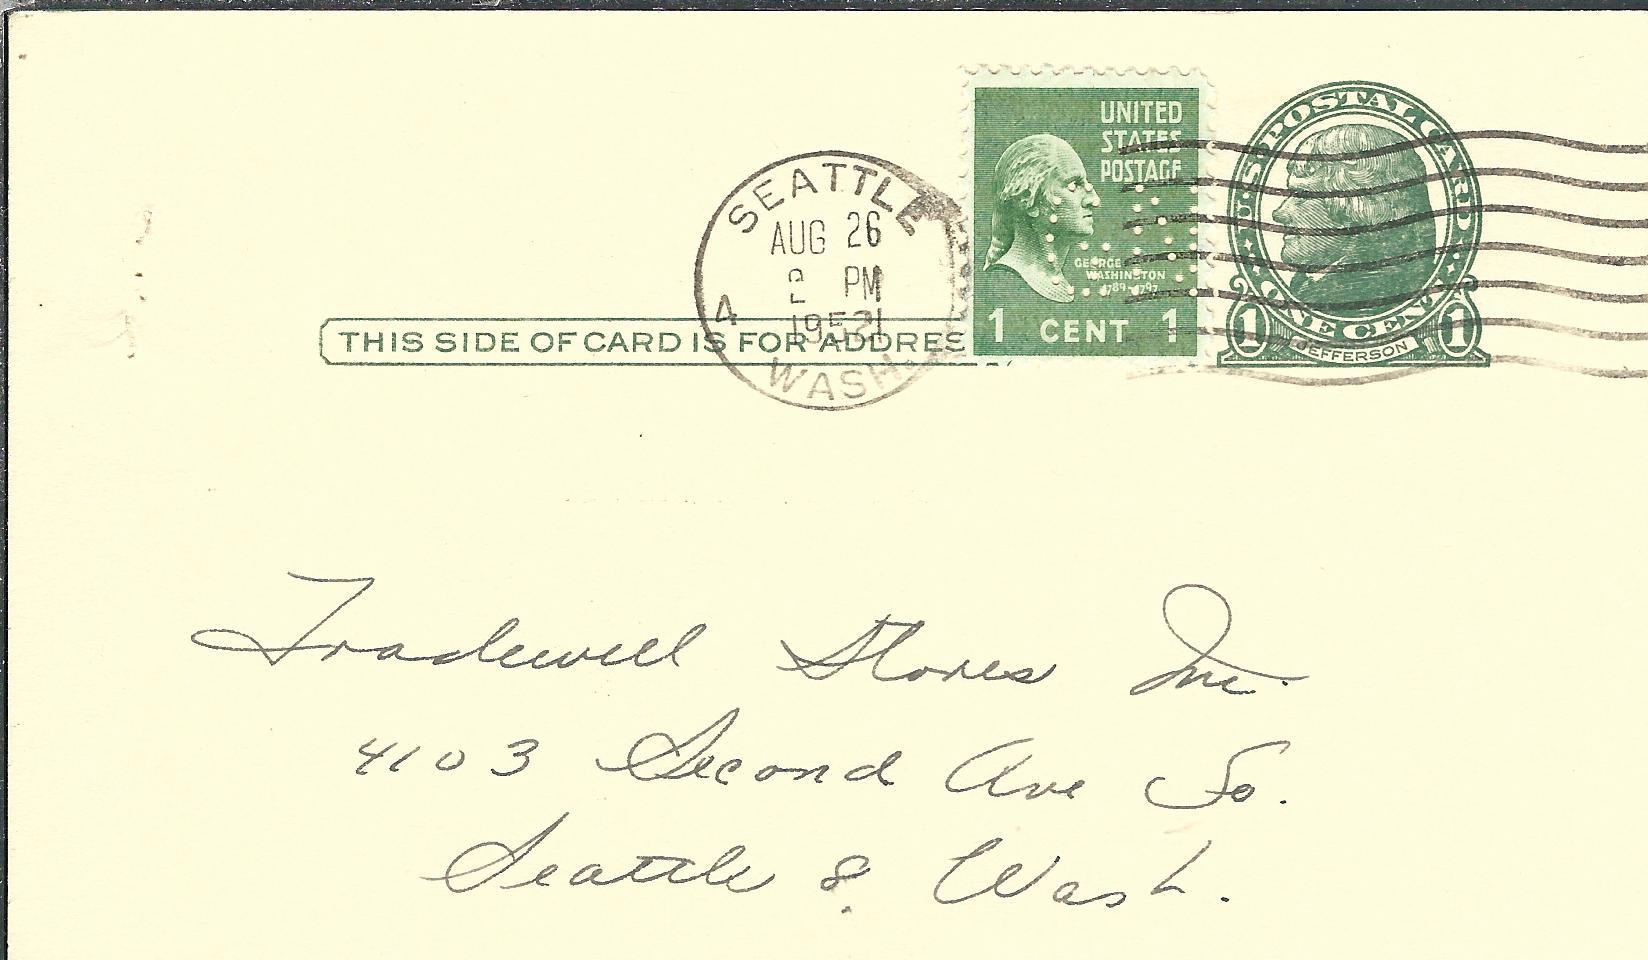 UNITED
STATES
POSTAGE
GEORGE
WASHINGTON
1789-1797
1 CENT 1
U.S. POSTAL CARD
ONE CENT
1 JEFFERSON 1
SEATTLE
AUG 26
2 PM
1952
4
WASH.
THIS SIDE OF CARD IS FOR ADDRES
Tradewell Stores Inc.
4103 Second Ave So.
Seattle 8. Wash.